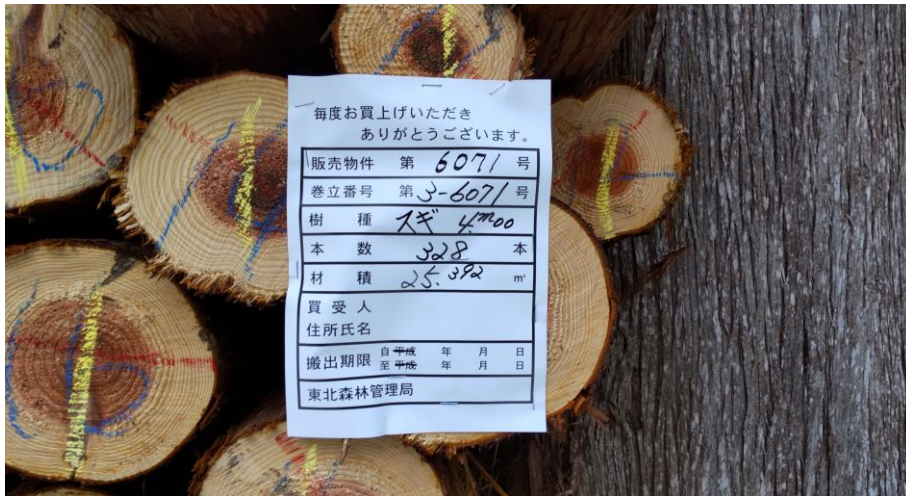 毎度お買上げいただき
ありがとうございます。
販売物件 第 6071 号
巻立番号 第 3-6071 号
樹種 スギ 4.m00
本数 328 本
材積 25.392 m³
買受人
住所氏名
搬出期限 自 平成 年 月 日
至 平成 年 月 日
東北森林管理局